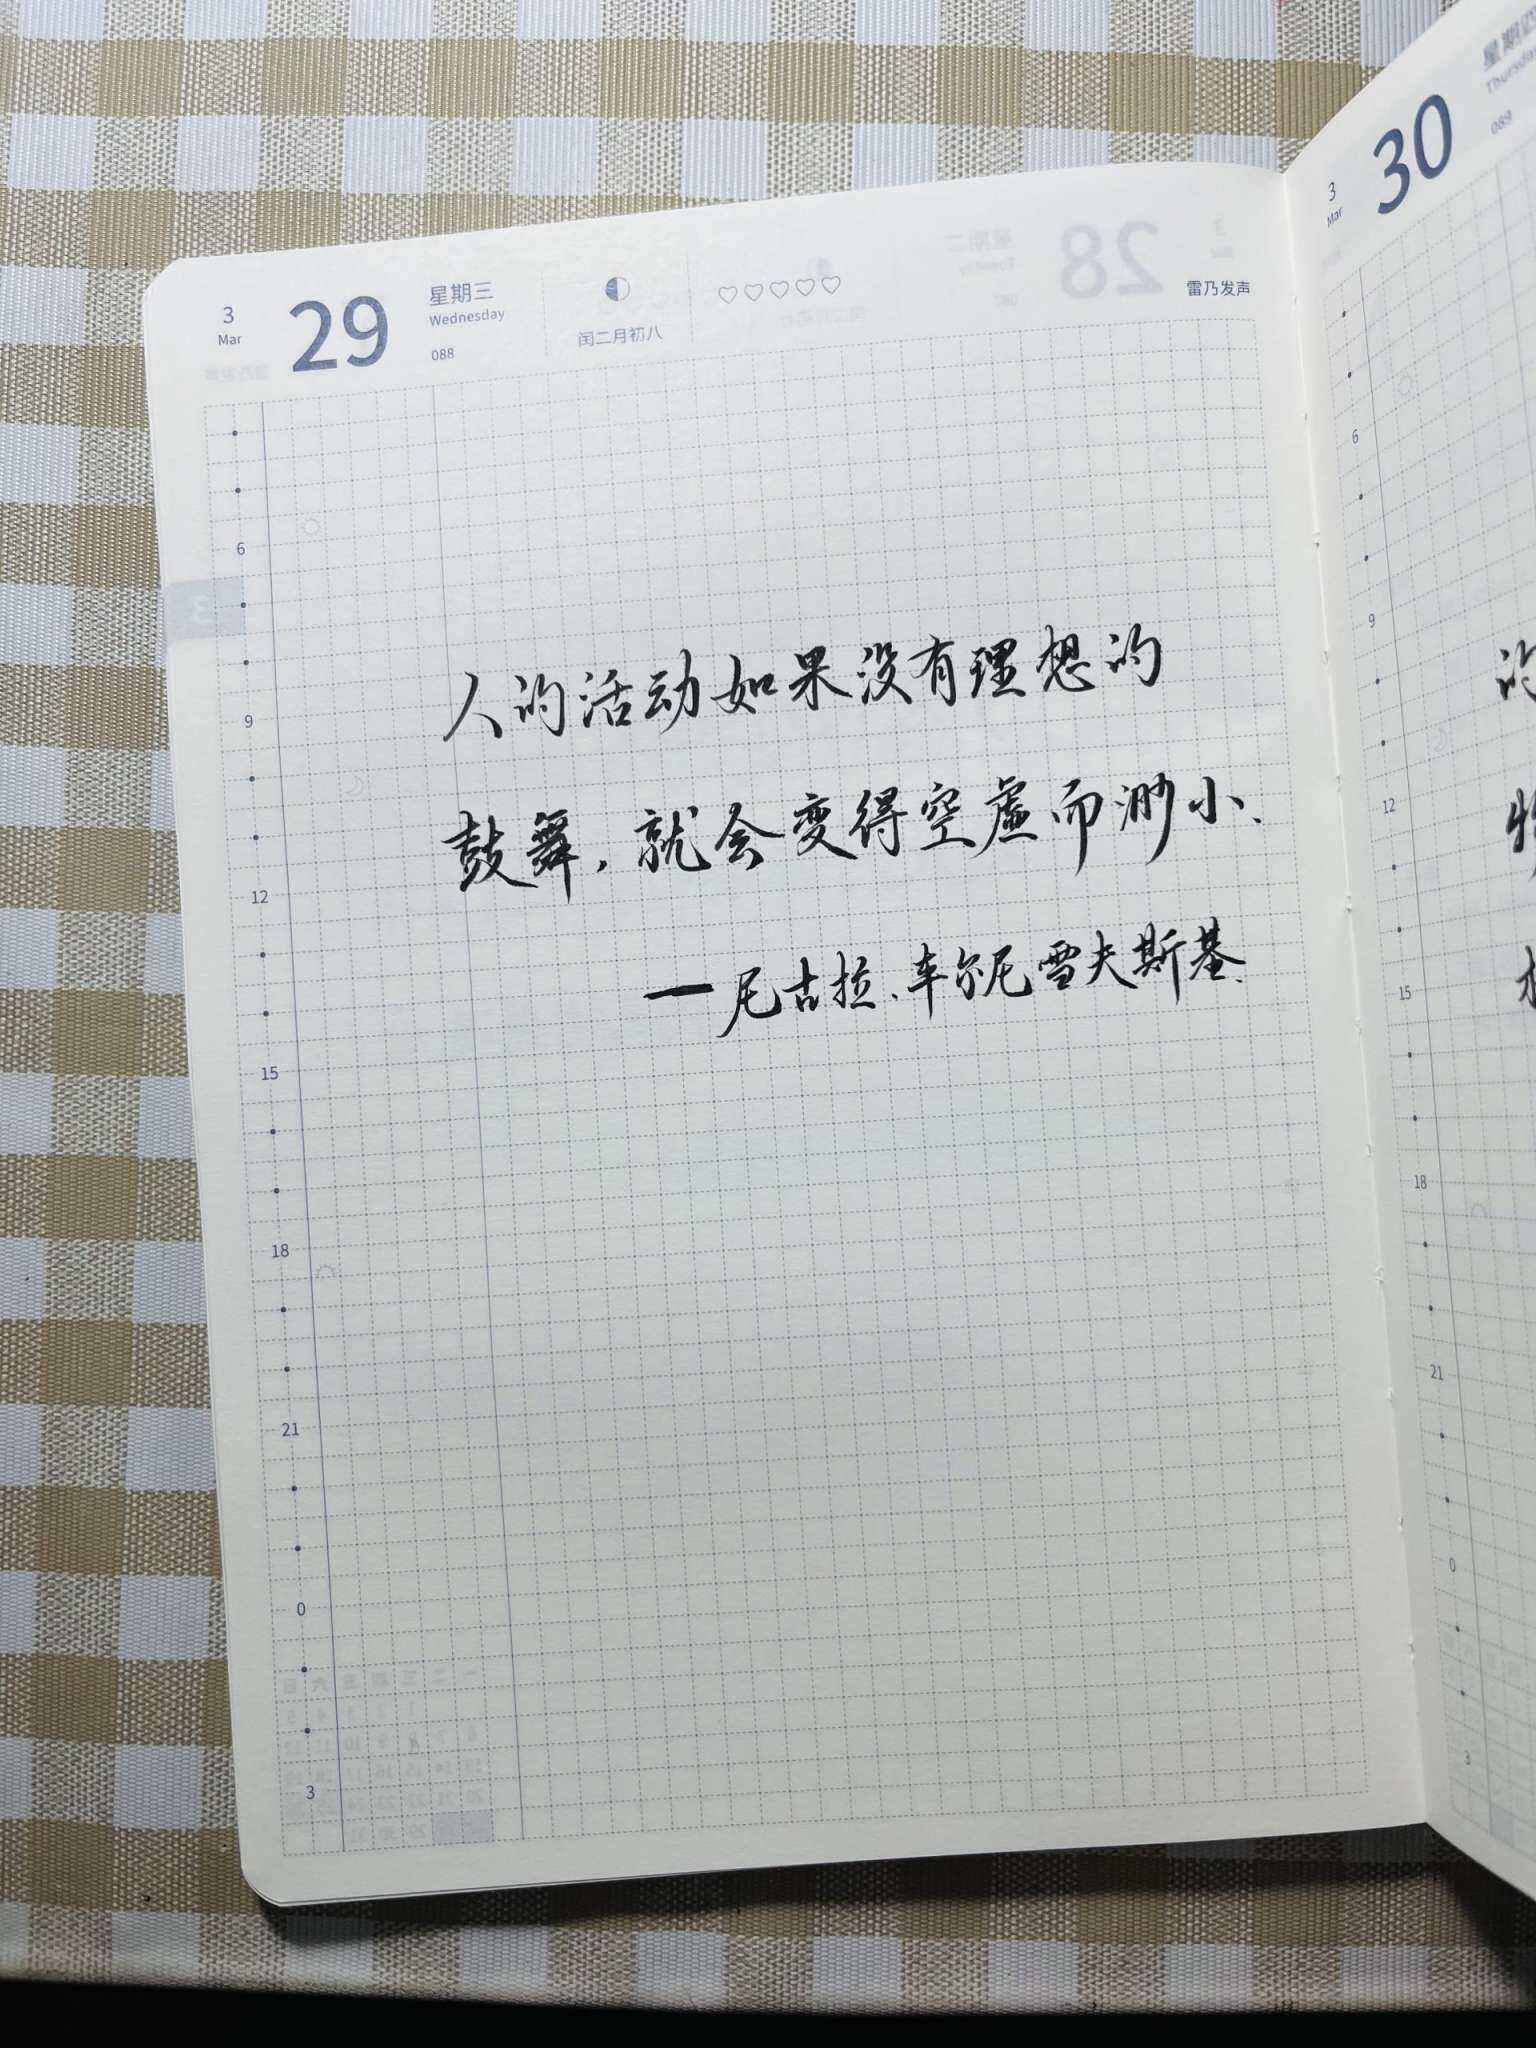 3
Mar
29
星期三
Wednesday
088
闰二月初八
雷乃发声
6
9
12
15
18
21
0
3
人的活动如果没有理想的
鼓舞,就会变得空虚而渺小、
一尼古拉、车尔尼雪夫斯基、
3
Mar
30
089
6
9
12
15
18
21
0
3